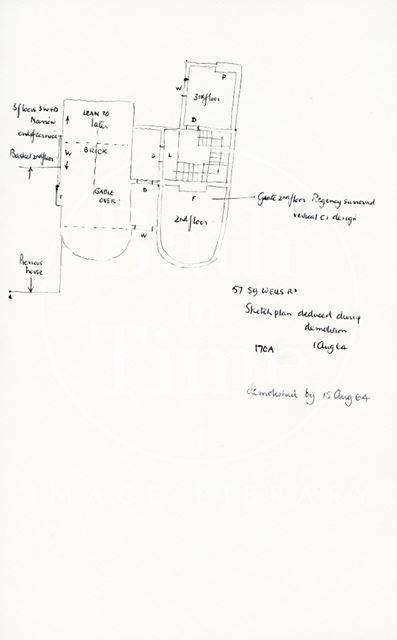 P
3rd floor
W
D
3 floors 3 W+D
Narrow
end of service
Basket 2nd floor
LEAN TO
later
BRICK
W
D
L
GABLE
OVER
D
F
F
2nd floor
W
Grate 2nd floor Regency surround
vertical CI design
Previous
house
57 59 WELLS Rd
Sketch plan deduced during
demolition
1 Aug 64
170A
demolished by 15 Aug 64
Bath
in
Time
IMAGE LIBRARY